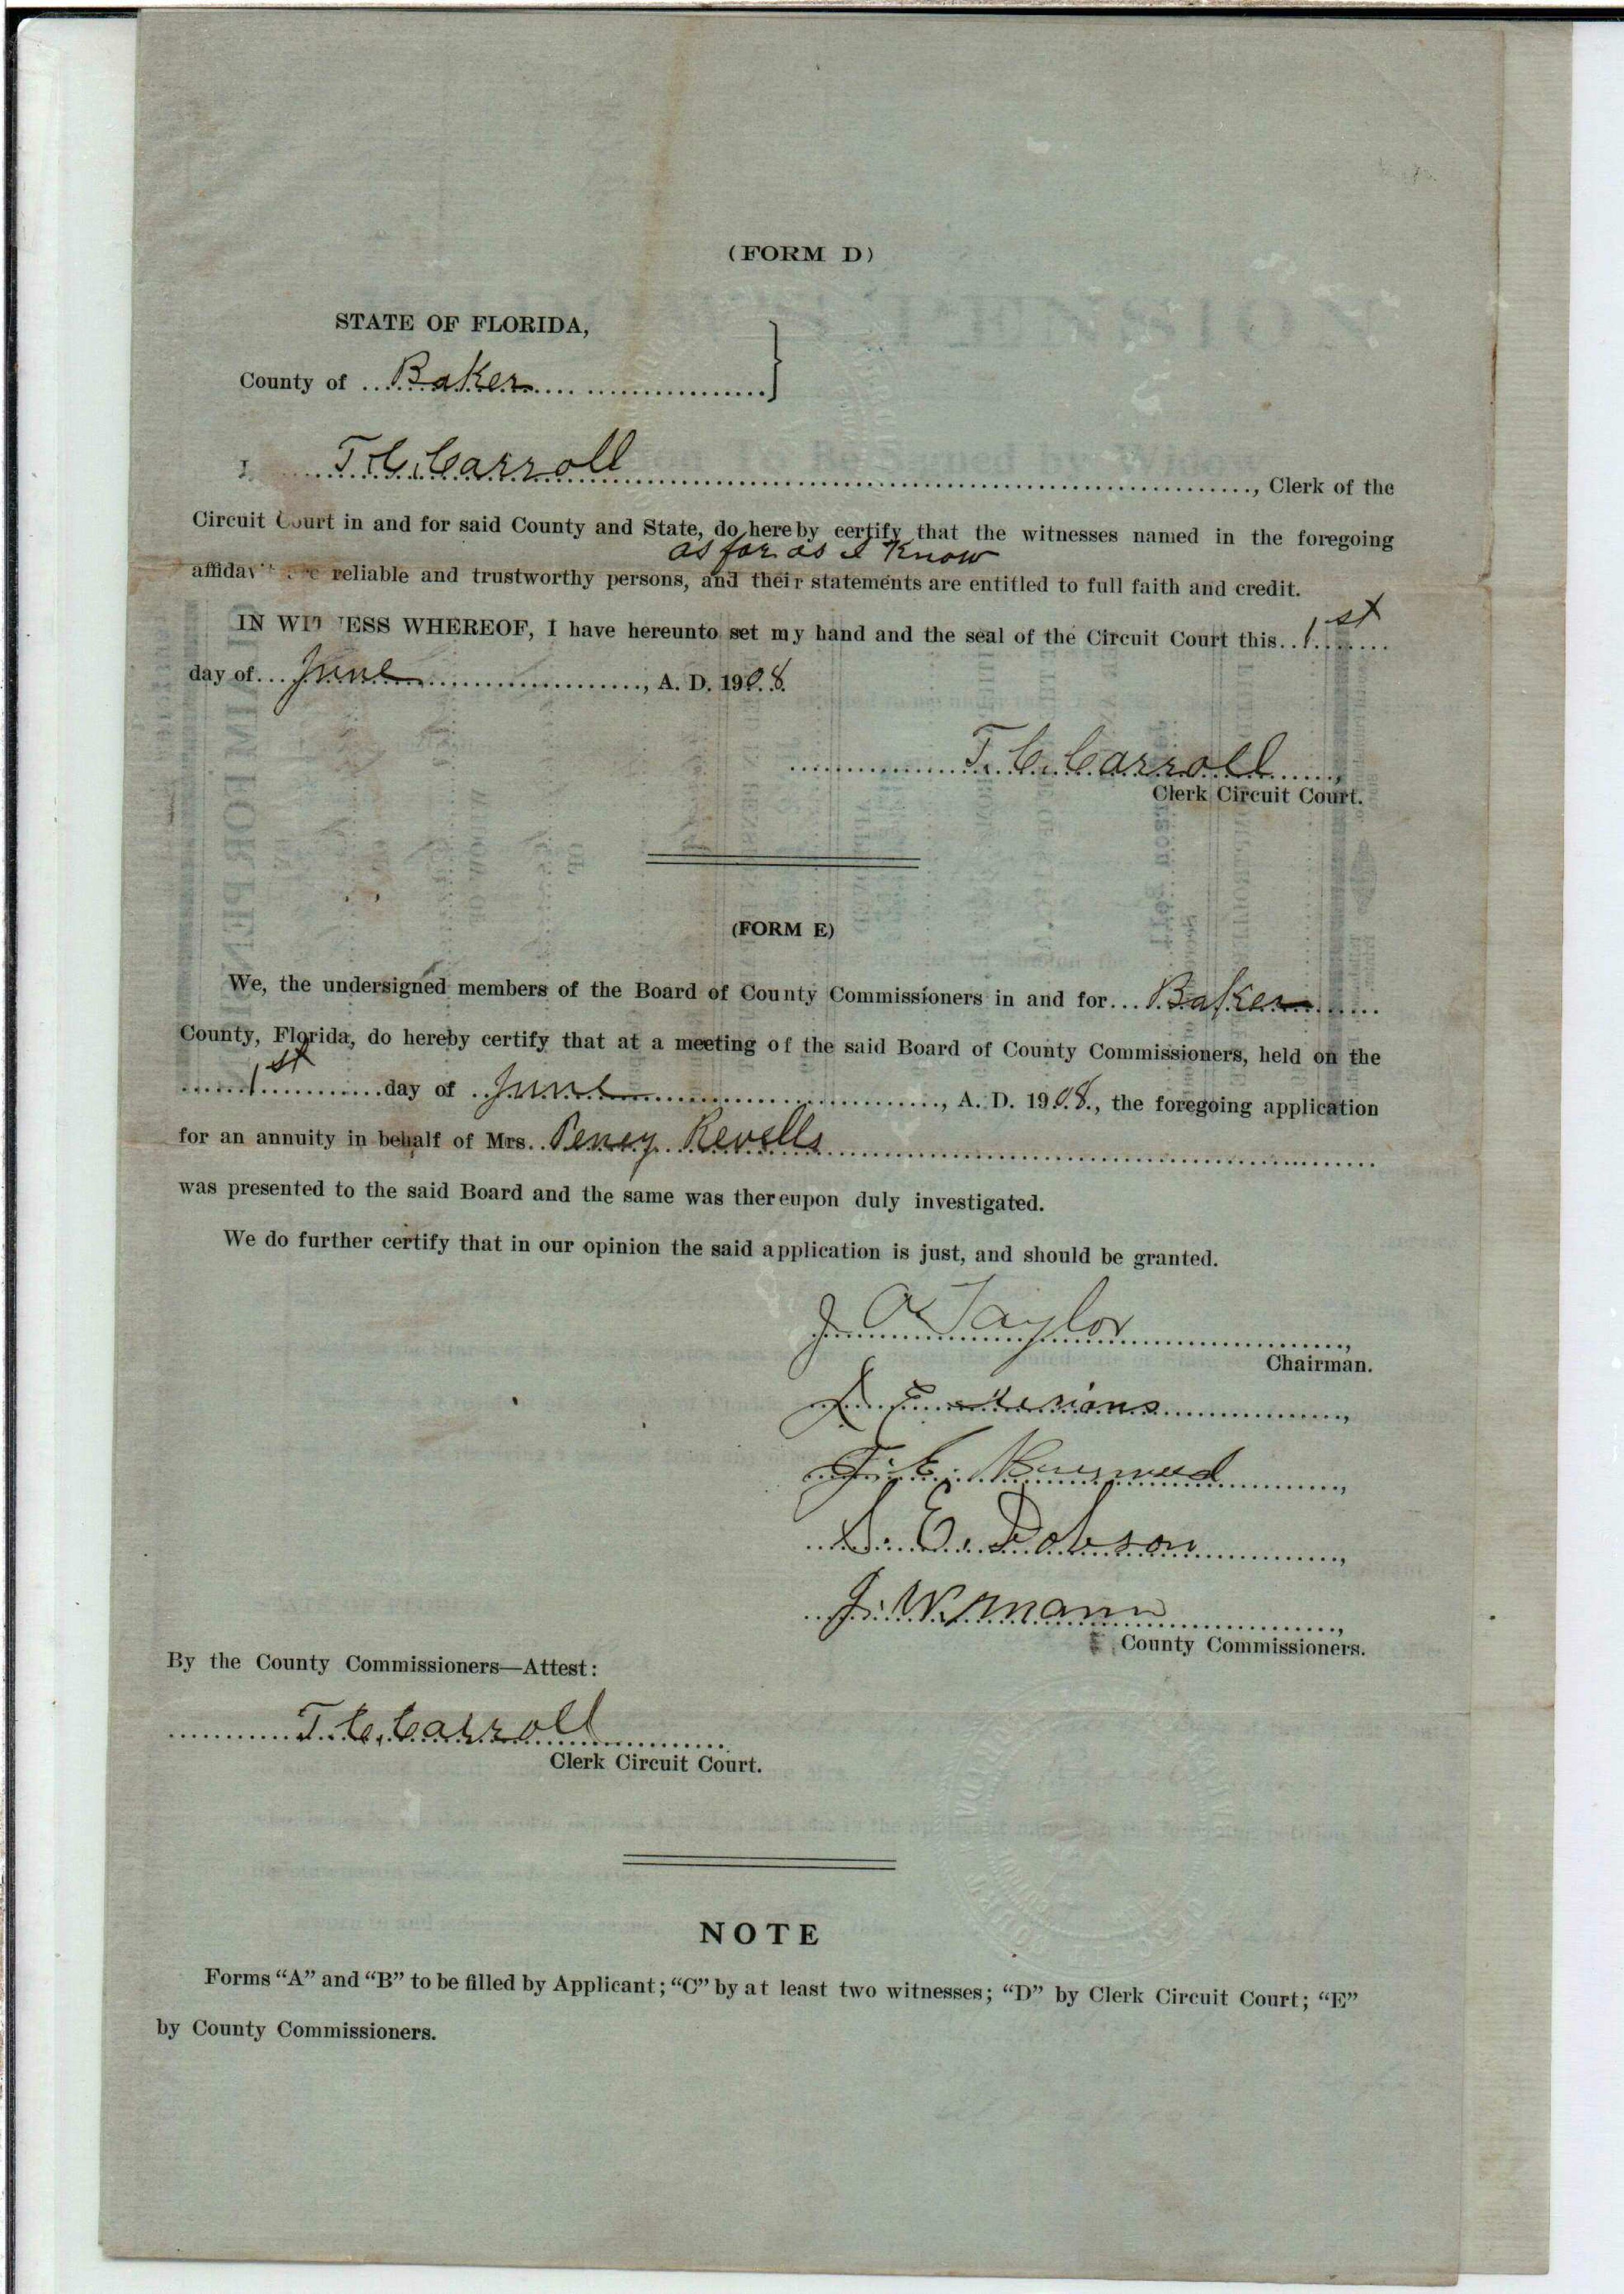 (FORM D)
STATE OF FLORIDA,
County of Baker
I T. C. Carroll, Clerk of the
Circuit Court in and for said County and State, do hereby certify that the witnesses named in the foregoing
as far as I Know
reliable and trustworthy persons, and their statements are entitled to full faith and credit.
IN WITNESS WHEREOF, I have hereunto set my hand and the seal of the Circuit Court this 1st
day of June, A. D. 1908.
T. C. Carroll,
Clerk Circuit Court.
(FORM E)
We, the undersigned members of the Board of County Commissioners in and for Baker
County, Florida, do hereby certify that at a meeting of the said Board of County Commissioners, held on the
1st day of June, A. D. 1908., the foregoing application
for an annuity in behalf of Mrs. Peney Revells
was presented to the said Board and the same was thereupon duly investigated.
We do further certify that in our opinion the said application is just, and should be granted.
J A Taylor,
Chairman.
S. E. Dobson,
J. W. Mann,
County Commissioners.
By the County Commissioners—Attest:
T. C. Carroll
Clerk Circuit Court.
NOTE
Forms "A" and "B" to be filled by Applicant; "C" by at least two witnesses; "D" by Clerk Circuit Court; "E"
by County Commissioners.